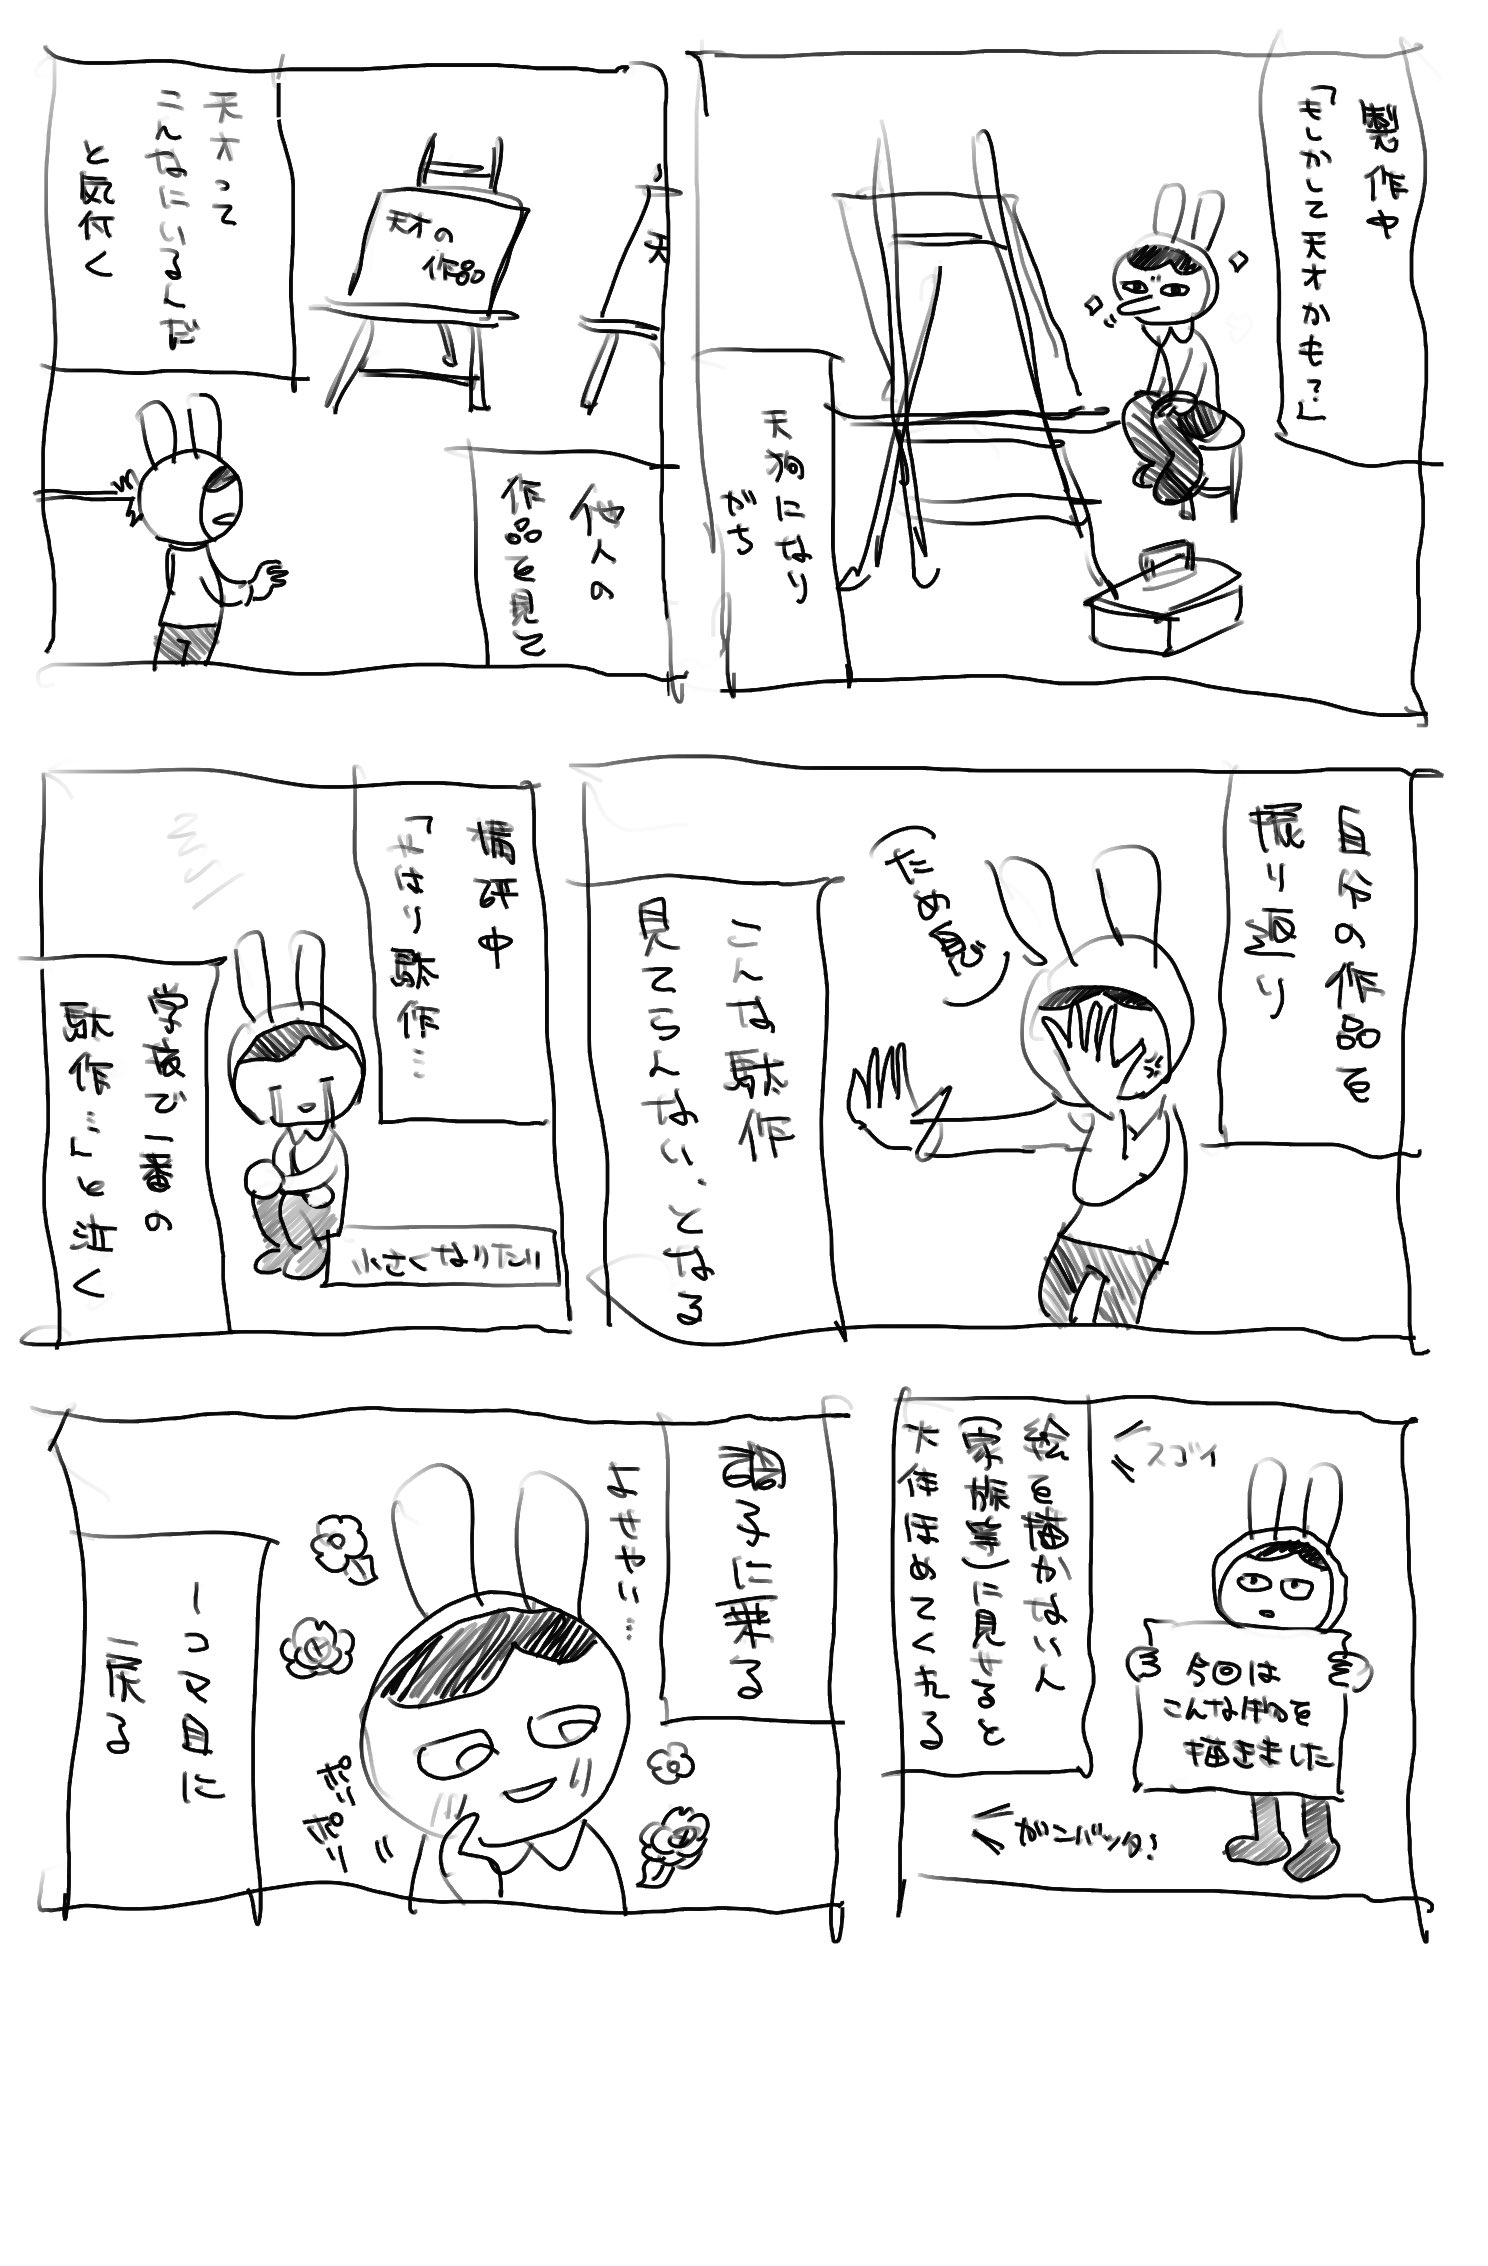 製作中
「もしかして天才かも?」
天狗になり
がち
他人の
作品を見て
天
天才の
作品
天才って
こんなにいるんだ
と気付く
自分の作品を
振り返り
だめだ
こんな駄作
見てらんない、となる
講評中
「やはり駄作…
小さくなりたい
学校で一番の
駄作…」と泣く
スゴイ
今回は
こんなものを
描きました
ガンバッタ!
絵を描かない人
(家族等)に見せると
大体ほめてくれる
調子に乗る
よせやい…
ポリ
ポリ
一コマ目に
戻る